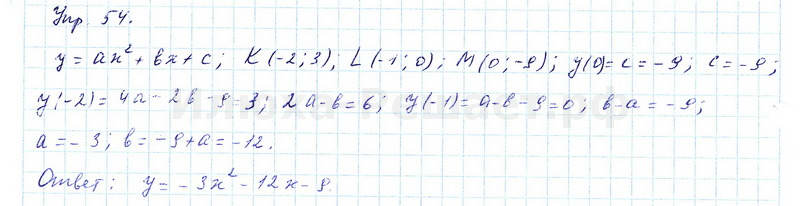 Упр. 54.
y = ax² + bx + c; K(-2; 3); L(-1; 0); M(0; -9); y(0) = c = -9; c = -9;
y(-2) = 4a - 2b - 9 = 3; 2a - b = 6; y(-1) = a - b - 9 = 0; b - a = -9;
a = -3; b = -9 + a = -12.
Ответ: y = -3x² - 12x - 9